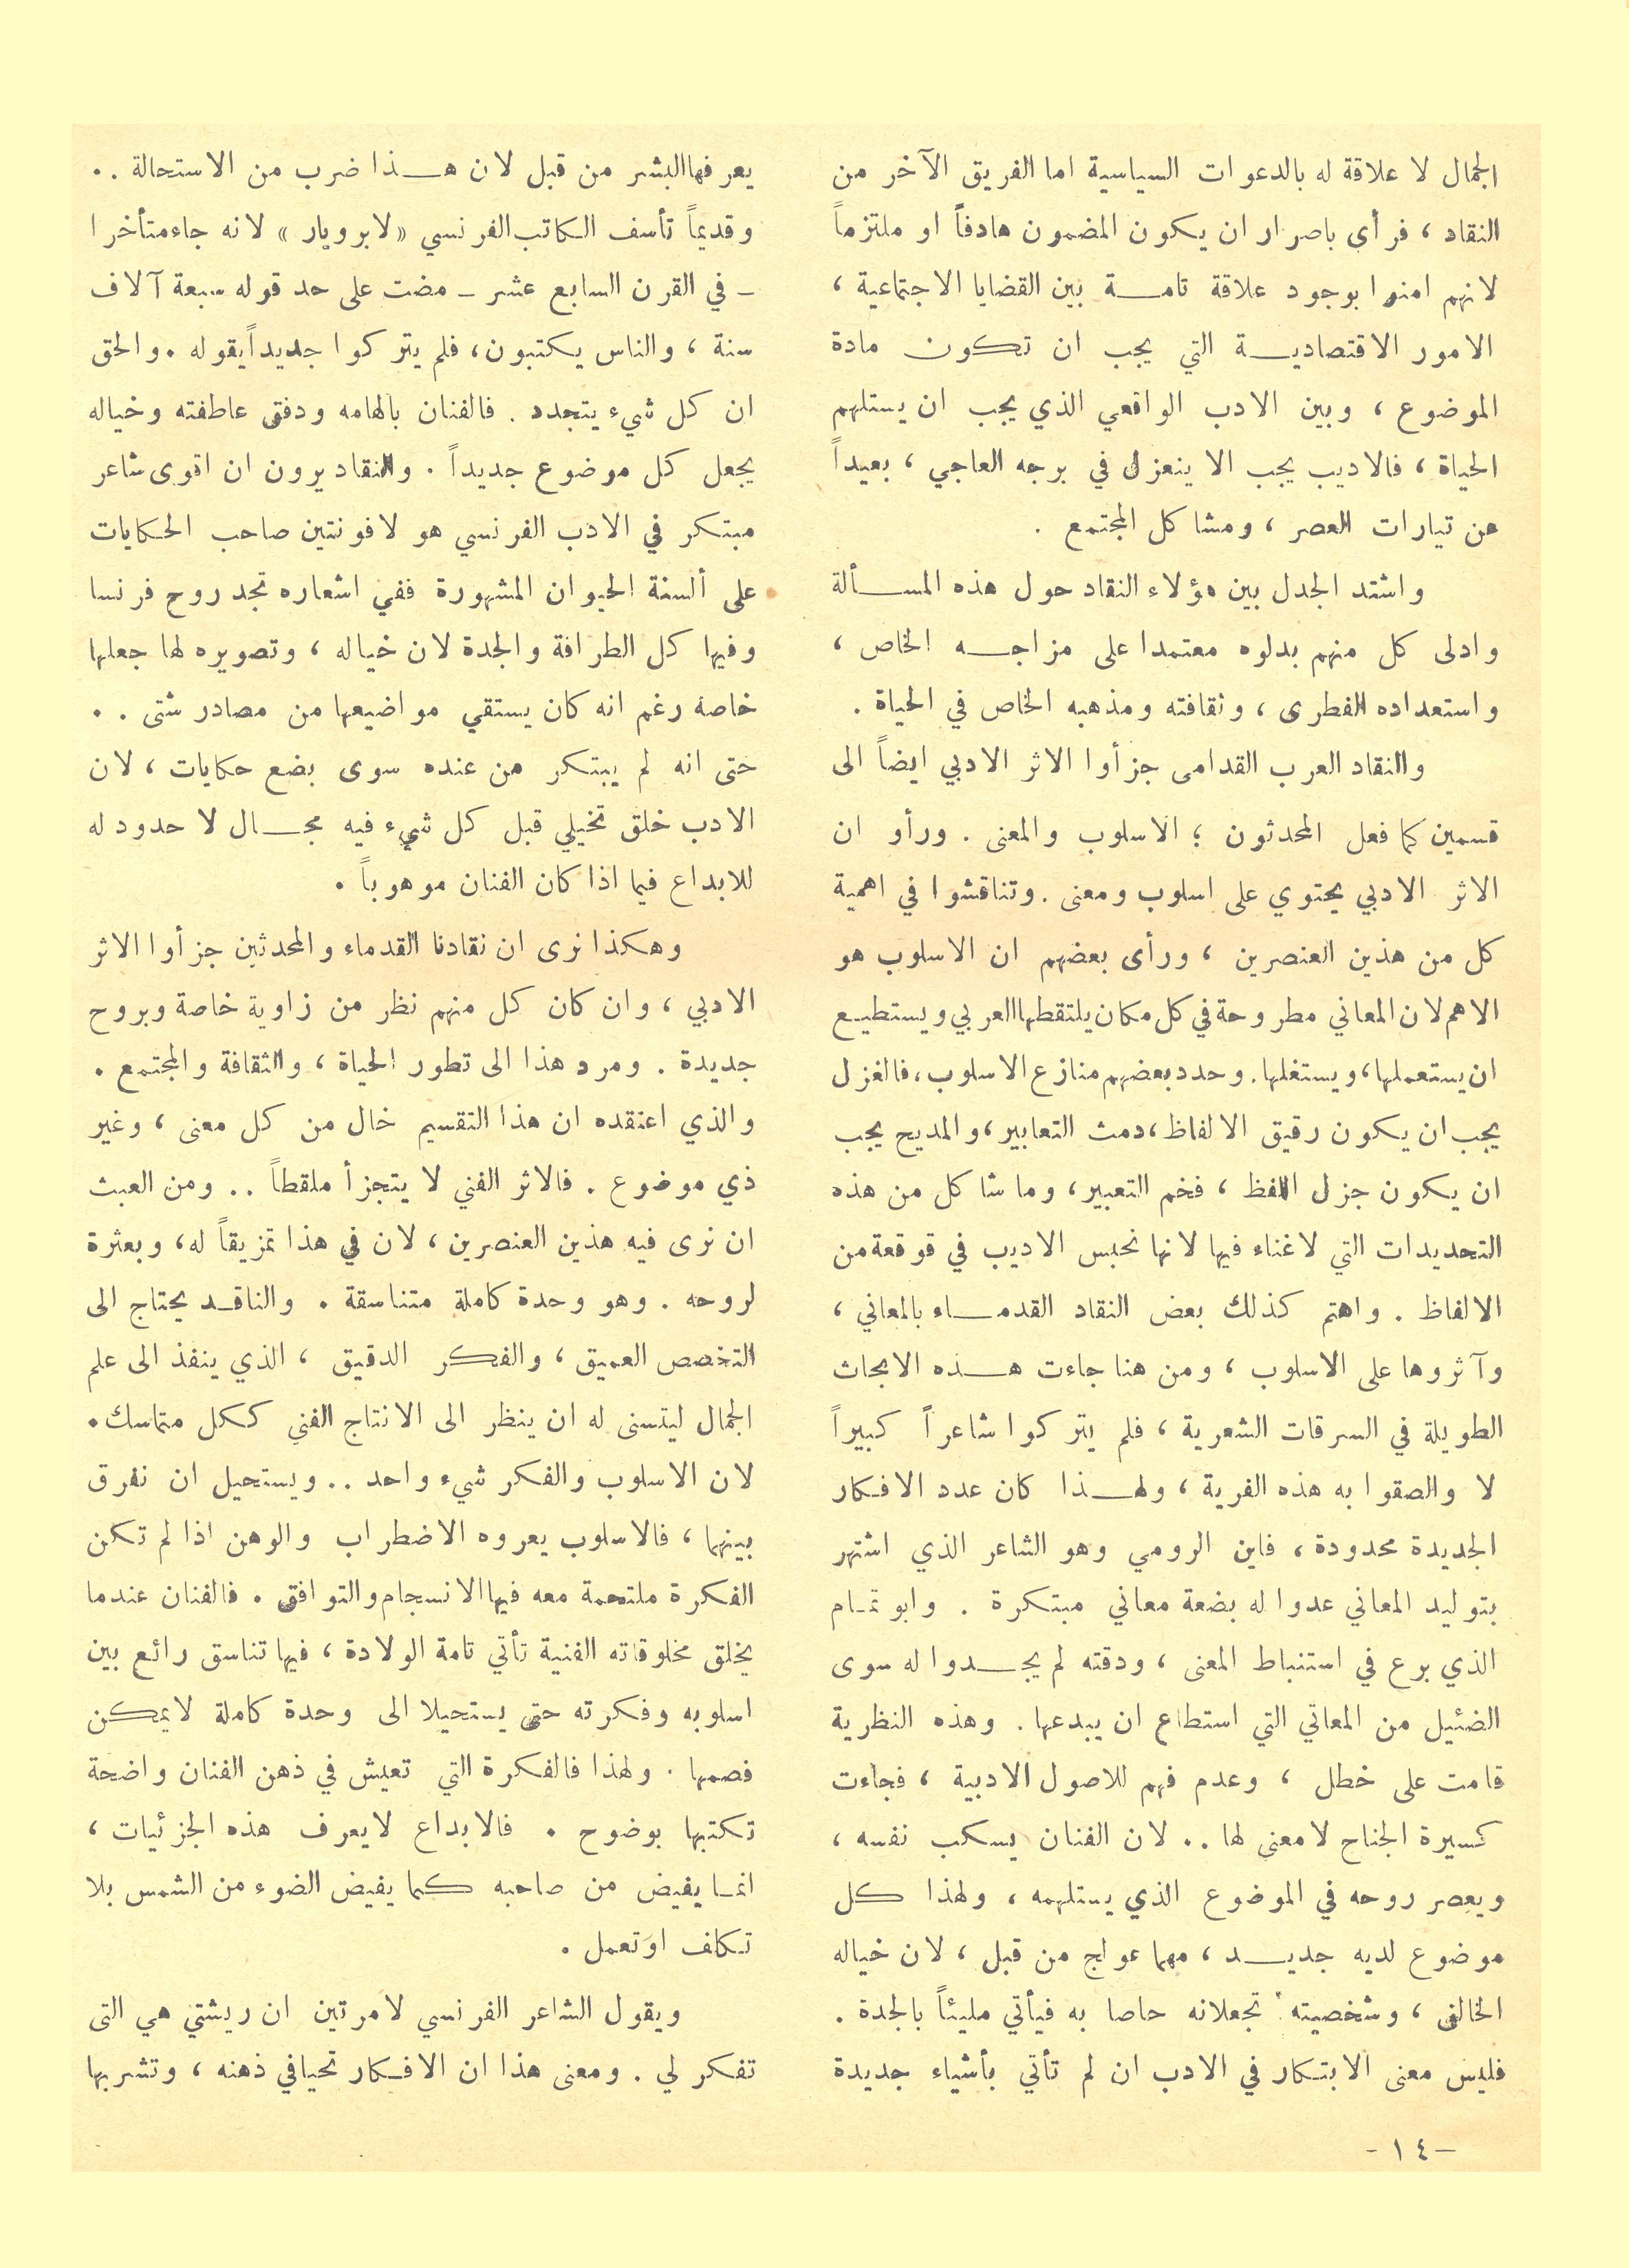 الجمال لا علاقة له بالدعوات السياسية اما الفريق الآخر من
النقاد ، فرأى باصرار ان يكون المضمون هادفاً او ملتزماً
لانهم امنوا بوجود علاقة تامة بين القضايا الاجتماعية ،
الامور الاقتصادية التي يجب ان تكون مادة
الموضوع ، وبين الادب الواقعي الذي يجب ان يستلهم
الحياة ، فالاديب يجب الا ينعزل في برجه العاجي ، بعيداً
عن تيارات العصر ، ومشاكل المجتمع .
واشتد الجدل بين هؤلاء النقاد حول هذه المسألة
وادلى كل منهم بدلوه معتمدا على مزاجه الخاص ،
واستعداده الفطرى ، وثقافته ومذهبه الخاص في الحياة .
والنقاد العرب القدامى جزأوا الاثر الادبي ايضاً الى
قسمين كما فعل المحدثون ؛ الاسلوب والمعنى . ورأو ان
الاثر الادبي يحتوي على اسلوب ومعنى . وتناقشوا في اهمية
كل من هذين العنصرين ، ورأى بعضهم ان الاسلوب هو
الاهم لان المعاني مطروحة في كل مكان يلتقطها العربي ويستطيع
ان يستعملها، ويستغلها. وحدد بعضهم منازع الاسلوب ، فالغزل
يجب ان يكون رقيق الالفاظ ، دمث التعابير ، والمديح يجب
ان يكون جزل اللفظ ، فخم التعبير ، وما شاكل من هذه
التحديدات التي لا غناء فيها لانها تحبس الاديب في قوقعة من
الالفاظ . واهتم كذلك بعض النقاد القدماء بالمعاني ،
وآثروها على الاسلوب ، ومن هنا جاءت هذه الابحاث
الطويلة في السرقات الشعرية ، فلم يتركوا شاعراً كبيراً
لا والصقوا به هذه الفرية ، ولهذا كان عدد الافكار
الجديدة محدودة ، فاين الرومي وهو الشاعر الذي اشتهر
بتوليد المعاني عدوا له بضعة معاني مبتكرة . وابو تمام
الذي برع في استنباط المعنى ، ودقته لم يجدوا له سوى
الضئيل من المعاني التي استطاع ان يبدعها . وهذه النظرية
قامت على خطل ، وعدم فهم للاصول الادبية ، فجاءت
كسيرة الجناح لا معنى لها .. لان الفنان يسكب نفسه ،
ويعصر روحه في الموضوع الذي يستلهمه ، ولهذا كل
موضوع لديه جديد ، مهما عولج من قبل ، لان خياله
الخالق ، وشخصيته تجعلانه حاصا به فيأتي مليئاً بالجدة .
فليس معنى الابتكار في الادب ان لم تأتي بأشياء جديدة
يعرفها البشر من قبل لان هذا ضرب من الاستحالة ..
وقديماً تأسف الكاتب الفرنسي «لابرويار» لانه جاء متأخرا
ـ في القرن السابع عشر ـ مضت على حد قوله سبعة آلاف
سنة ، والناس يكتبون ، فلم يتركوا جديداً يقوله . والحق
ان كل شيء يتجدد . فالفنان بالهامه ودفق عاطفته وخياله
يجعل كل موضوع جديداً . والنقاد يرون ان اقوى شاعر
مبتكر في الادب الفرنسي هو لافونتين صاحب الحكايات
على ألسنة الحيوان المشهورة ففي اشعاره تجد روح فرنسا
وفيها كل الطرافة والجدة لان خياله ، وتصويره لها جعلها
خاصة رغم انه كان يستقي مواضيعها من مصادر شتى ..
حتى انه لم يبتكر من عنده سوى بضع حكايات ، لان
الادب خلق تخيلي قبل كل شيء فيه مجال لا حدود له
للابداع فيما اذا كان الفنان موهوباً .
وهكذا نرى ان نقادنا القدماء والمحدثين جزأوا الاثر
الادبي ، وان كان كل منهم نظر من زاوية خاصة وبروح
جديدة . ومرد هذا الى تطور الحياة ، والثقافة والمجتمع .
والذي اعتقده ان هذا التقسيم خال من كل معنى ، وغير
ذي موضوع . فالاثر الفني لا يتجزأ ملقطاً .. ومن العبث
ان نرى فيه هذين العنصرين ، لان في هذا تمزيقاً له ، وبعثرة
لروحه . وهو وحدة كاملة متناسقة . والناقد يحتاج الى
التخصص العميق ، والفكر الدقيق ، الذي ينفذ الى علم
الجمال ليتسنى له ان ينظر الى الانتاج الفني ككل متماسك .
لان الاسلوب والفكر شيء واحد .. ويستحيل ان نفرق
بينهما ، فالاسلوب يعروه الاضطراب والوهن اذا لم تكن
الفكرة ملتحمة معه فيها الانسجام والتوافق . فالفنان عندما
يخلق مخلوقاته الفنية تأتي تامة الولادة ، فيها تناسق رائع بين
اسلوبه وفكرته حتى يستحيلا الى وحدة كاملة لايمكن
فصمها . ولهذا فالفكرة التي تعيش في ذهن الفنان واضحة
تكتبها بوضوح . فالابداع لايعرف هذه الجزئيات ،
انما يفيض من صاحبه كما يفيض الضوء من الشمس بلا
تكلف او تعمل .
ويقول الشاعر الفرنسي لامرتين ان ريشتي هي التى
تفكر لي . ومعنى هذا ان الافكار تحيا في ذهنه ، وتشربها
- ١٤ -